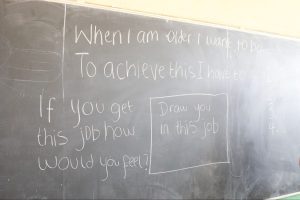 When I am older I want to be
To achieve this I have to
If you get
this job how
would you feel?
Draw you
in this job